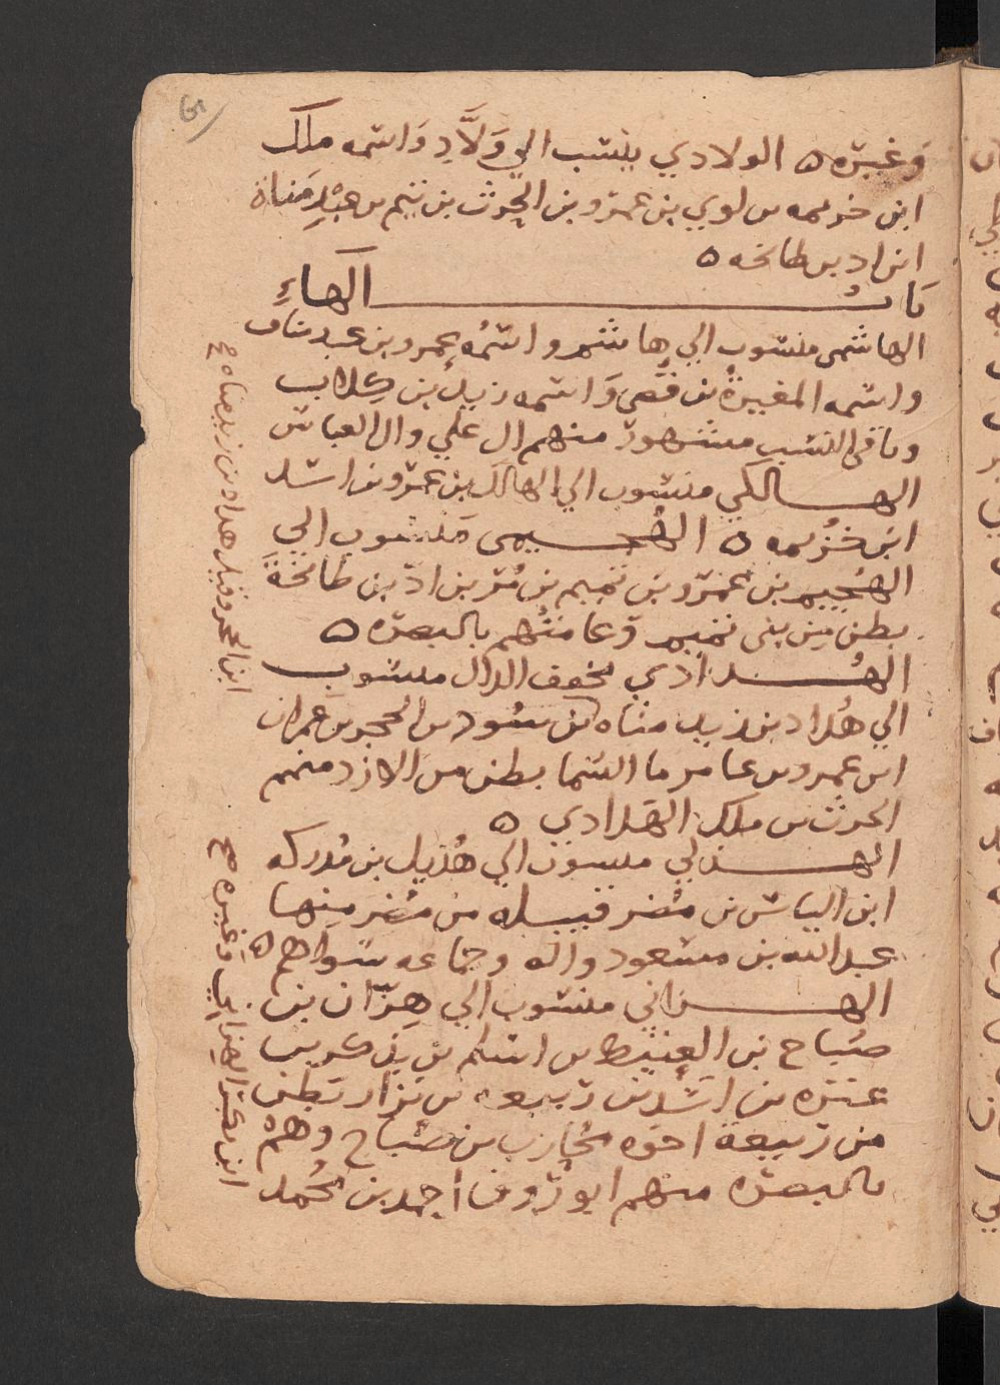 وَغيرُه ٥ الولادي ينسب الي وَلَّادِ وَاسمه ملك
ابن خزيمه بن لوي بن عمرو بن الحرث بن تيم بن عبْدِ مَناة
ابن اد بن طابخه ٥
بَابُ الهاءِ
الهاشمى منسوب الي هاشم واسمُه عمرو بن عبد مناف
واسمه المغيرةُ بن قُصى وَاسمه زيدُ بن كِلاب
وباقى النسب مشهور منهم ال علي وال العباس
الهالكي منسوب الي الهالك بن عمرو بن اسد
ابن خُزيمه ٥ الهُجيمى منسوب الي
الهُجيم بن عمرو بن تميم بن مُر بن ادّ بن طابخةَ
بطن مِن بنى تميم وعامتُهم بالبصره ٥
الهُدادي مخفف الدال منسوب
الي هُداد بن زيد مناه بن سُود بن الحجر بن عمران
ابن عمرو بن عامر ما السما بطن من الازد منهم
الحرث بن ملك الهَدادي ٥
الهذلي منسوب الي هُذيل بن مُدركه
ابن الياس بن مُضر قبيله من مُضر مِنها
عبد الله بن مسعود واله وجماعه سواهم ٥
الهزاني منسوب الي هِزّان بن
صُباح بن العتيك بن اسلم بن يذكر بن
عنزه بن اسَد بن ربيعه بن نزار بَطن
من ربيعة اخوه مُحارب بن صُباح وهم
بالبصره منهم ابو رَوق احمد بن مُحمد
ابن الحجر وقيل هداد بن زيد مناه صح
ابن بكر الهِزاني وَغيره صح